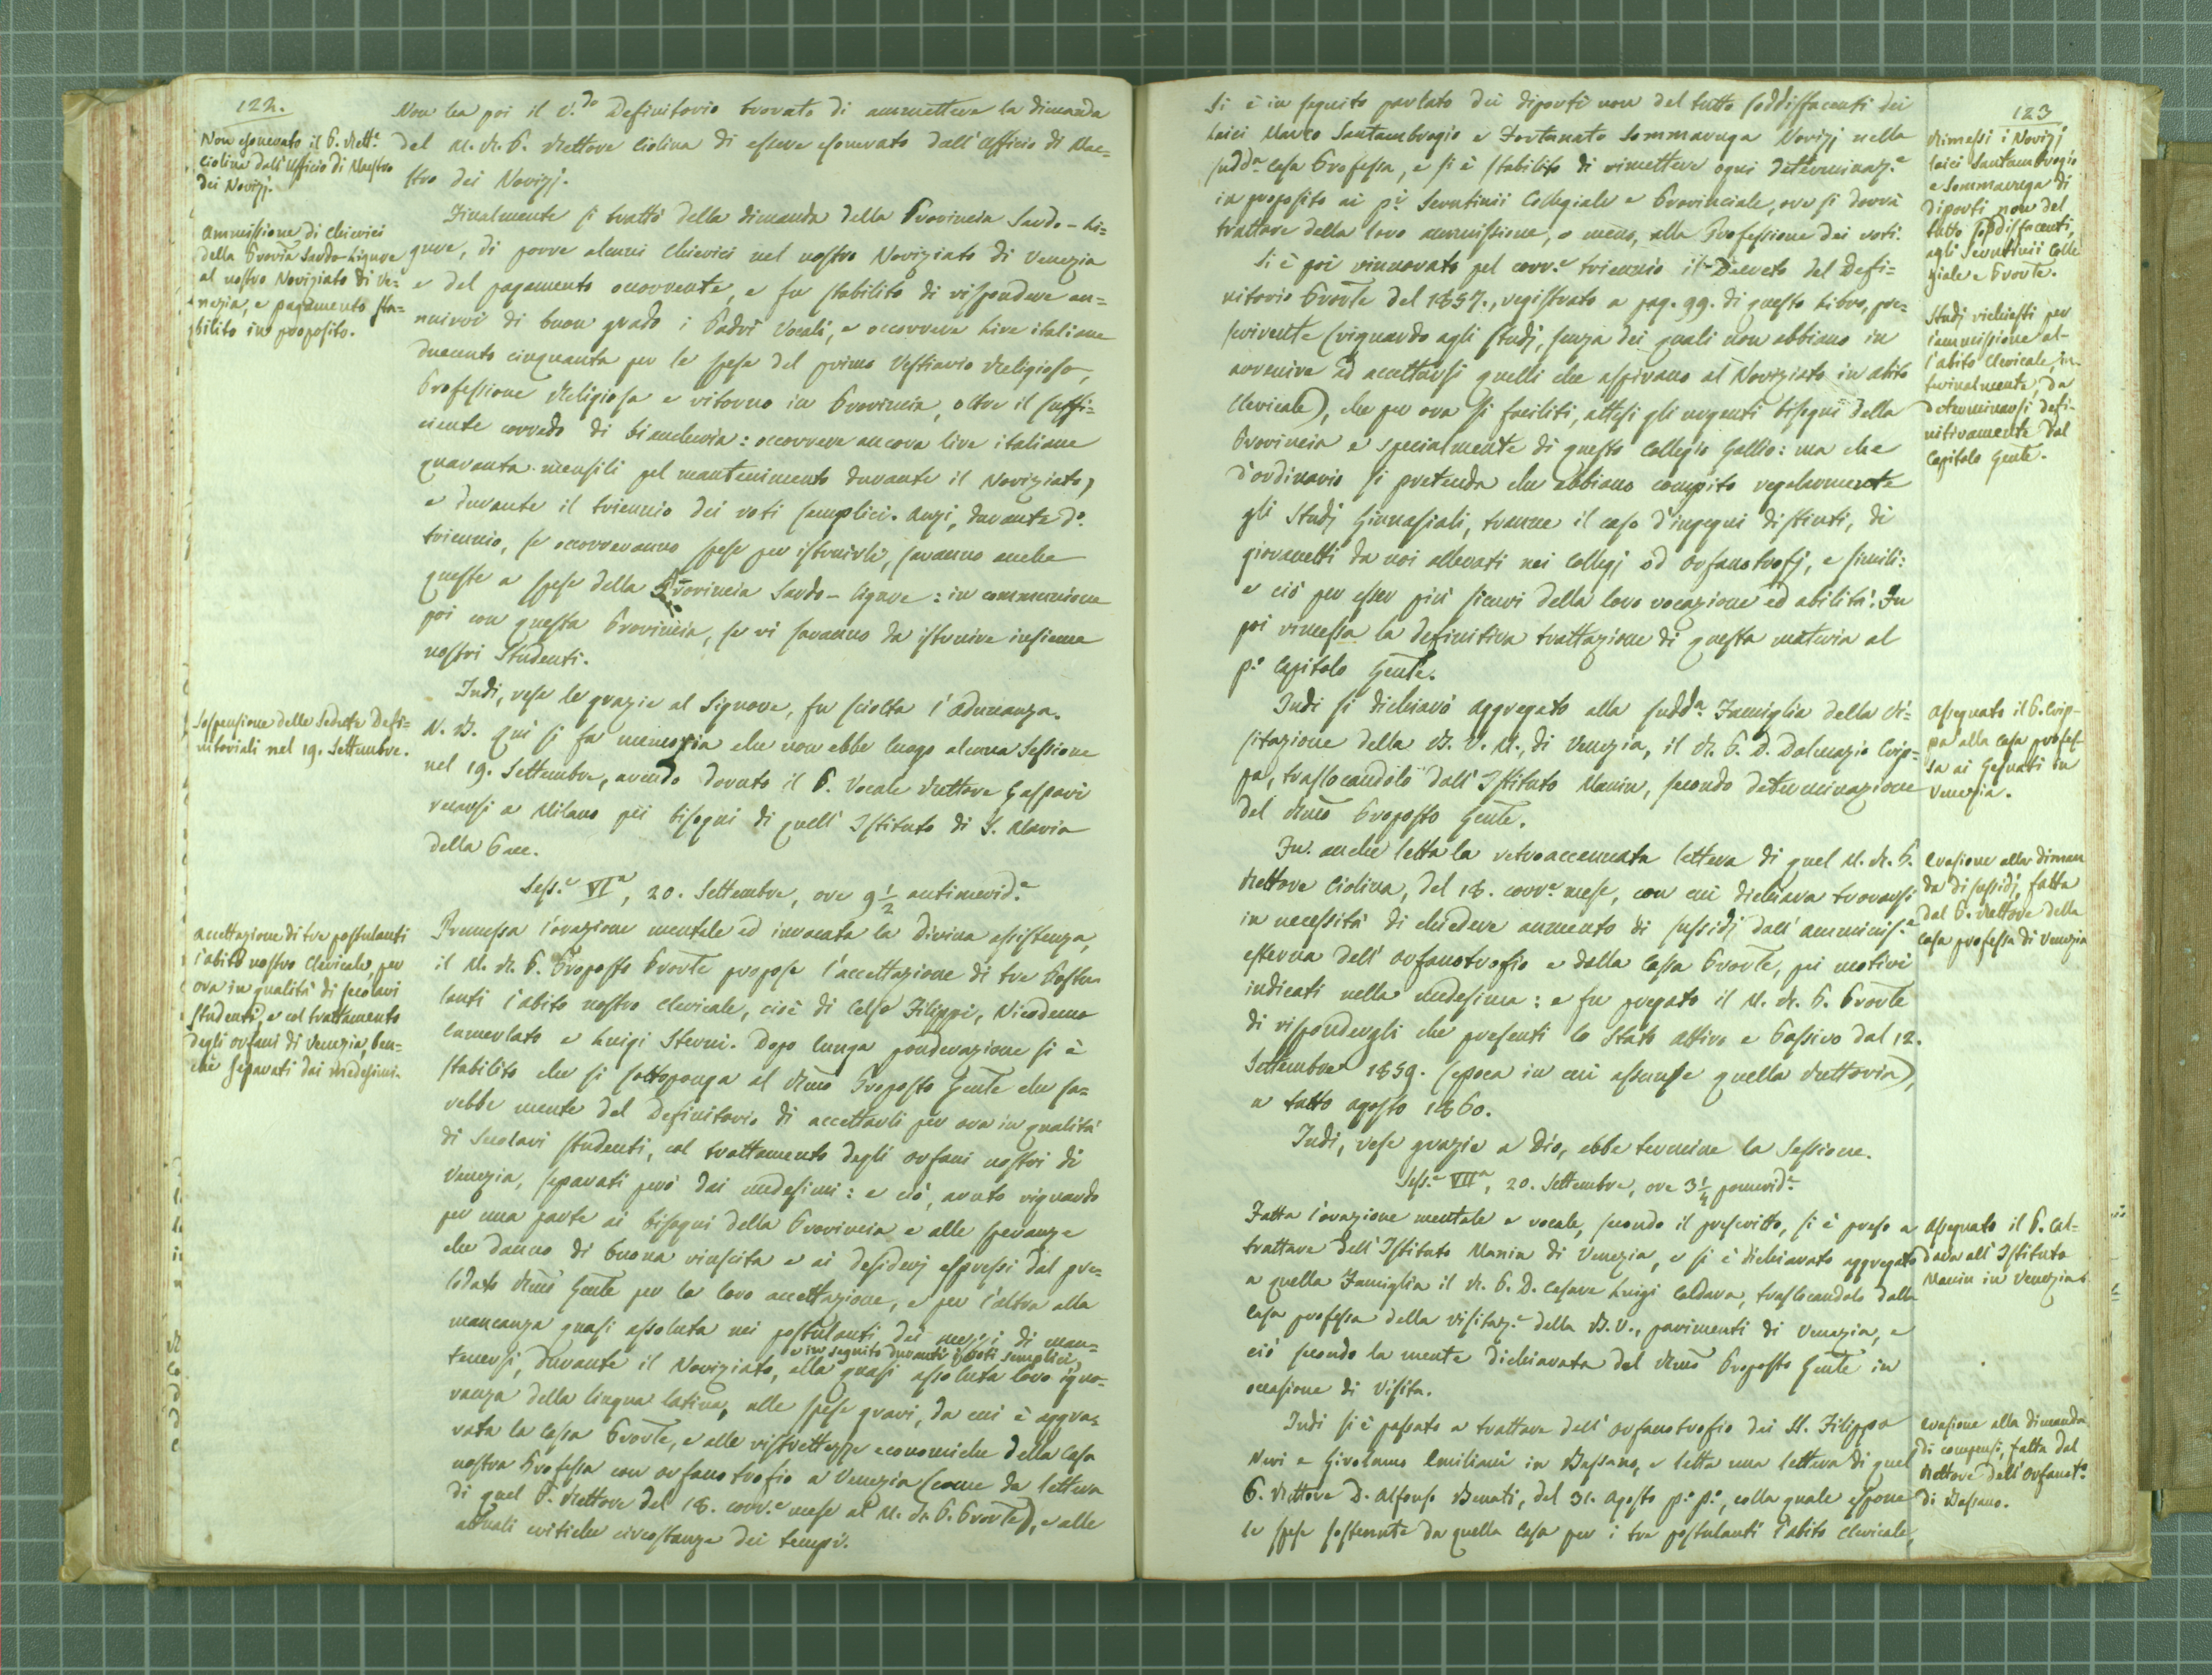 122.
Non esonerato il P. Rett.e
Ciolina dall'Ufficio di Maestro
dei Novizj.
Ammissione di Chierici
della Provia Sardo-Ligure
al nostro Noviziato di Ve=
nezia, e pagamento sta=
bilito in proposito.
Sospensione delle Sedute Defi=
nitoriali nel 19. Settembre.
Accettazione di tre postulanti
l'abito nostro Clericale, per
ora in qualità di scolari
studenti, e col trattamento
degli orfani di Venezia, ben=
chè separati dai medesimi.
Non ha poi il V.do Definitorio trovato di ammettere la dimanda
del M. R. P. Rettore Ciolina di essere esonerato dall'Ufficio di Mae=
stro dei Novizj.
Finalmente si trattò della dimanda della Provincia Sardo-Li=
gure, di porre alcuni Chierici nel nostro Noviziato di Venezia
e del pagamento occorrente, e fu stabilito di rispondere an=
nuirvi di buon grado i Padri Vocali, e occorrere Lire italiane
duecento cinquanta per le spese del primo Vestiario Religioso,
Professione Religiosa e ritorno in Provincia, oltre il suffi=
ciente corredo di biancheria: occorrere ancora lire italiane
quaranta mensili pel mantenimento durante il Noviziato,
e durante il triennio dei voti semplici. Anzi, durante d.o
triennio, se occorreranno spese per istruirli, saranno anche
queste a spese della Provincia Sardo-Ligure: in communione
poi con questa Provincia, se vi saranno da istruire insieme
nostri Studenti.
Indi, rese le grazie al Signore, fu sciolta l'Adunanza.
N. B. Qui si fa memoria che non ebbe luogo alcuna Sessione
nel 19. Settembre, avendo dovuto il P. Vocale Rettore Gaspari
recarsi a Milano pei bisogni di quell'Istituto di S. Maria
della Pace.
Sess.e VI.a, 20. Settembre, ore 9 1/2 antimerid.e
Premessa l'orazione mentale ed invocata la Divina assistenza,
il M. R. P. Proposto Provle propose l'accettazione di tre Postu=
lanti l'abito nostro Clericale, cioè di Celso Filippi, Nicodemo
Camerlato e Luigi Sterni. Dopo lunga ponderazione si è
stabilito che si sottoponga al Rmo Proposto Genle che sa=
rebbe mente del Definitorio di accettarli per ora in qualità
di Scolari studenti, col trattamento degli orfani nostri di
Venezia, separati però dai medesimi: e ciò, avuto riguardo
per una parte ai bisogni della Provincia e alle speranze
che danno di buona riuscita e ai desiderj espressi dal pre=
lodato Rmo Genle per la loro accettazione, e per l'altra alla
mancanza quasi assoluta nei postulanti dei mezzi di man=
e in seguito durante i voti semplici,
tenersi, durante il Noviziato, alla quasi assoluta loro igno=
ranza della lingua latina, alle spese gravi, da cui è aggra=
vata la Cassa Provle, e alle ristrettezze economiche della Casa
nostra Professa con orfanotrofio a Venezia (come da lettera
di quel P. Rettore del 18. corr.e mese al M. R. P. Provle), e alle
attuali critiche circostanze dei tempi.
123
Si è in seguito parlato dei diporti non del tutto soddisfacenti dei
Laici Marco Santambrogio e Fortunato Sommaruga Novizj nella
sudd.a Casa Professa, e si è stabilito di rimettere ogni determinaz.e
in proposito ai p.i Scrutinii Collegiale e Provinciale, ove si dovrà
trattare della loro ammissione, o meno, alla Professione dei voti.
Si è poi rinnovato pel corr.e triennio il Decreto del Defi=
nitorio Provle del 1857., registrato a pag. 99. di questo Libro, pre=
scrivente (riguardo agli studj, senza dei quali non abbiano in
avvenire ad accettarsi quelli che aspirano al Noviziato in abito
Clericale), che per ora si faciliti, attesi gli urgenti bisogni della
Provincia e specialmente di questo Collegio Gallio: ma che
d'ordinario si pretenda che abbiano compito regolarmente
gli Studj Ginnasiali, tranne il caso d'ingegni distinti, di
giovanetti da noi allevati nei Collegj od orfanotrofj, e simili:
e ciò per esser più sicuri della loro vocazione ed abilità. Fu
poi rimessa la definitiva trattazione di questa materia al
p.o Capitolo Genle.
Indi si dichiarò aggregato alla sudd.a Famiglia della Vi=
sitazione della B. V. M., di Venezia, il R. P. D. Dalmazio Crip=
pa, traslocandolo dall'Istituto Manin, secondo determinazione
del Rmo Proposto Genle.
Fu anche letta la retroaccennata lettera di quel M. R. P.
Rettore Ciolina, del 18. corr.e mese, con cui dichiara trovarsi
in necessità di chiedere aumento di sussidj dall'amminis.e
esterna dell'orfanotrofio e dalla Cassa Provle, pei motivi
indicati nella medesima: e fu pregato il M. R. P. Provle
di rispondergli che presenti lo Stato attivo e Passivo dal 12.
Settembre 1859. (epoca in cui assunse quella Rettoria),
a tutto agosto 1860.
Indi, rese grazie a Dio, ebbe termine la Sessione.
Sess.e VII.a, 20. Settembre, ore 3 1/4 pomerid.e
Fatta l'orazione mentale e vocale, secondo il prescritto, si è preso a
trattare dell'Istituto Manin di Venezia, e si è dichiarato aggregato
a quella Famiglia il R. P. D. Cesare Luigi Caldara, traslocandolo dalla
Casa professa della Visitaz.e della B. V., parimenti di Venezia, e
ciò secondo la mente dichiarata del Rmo Proposto Genle in
occasione di Visita.
Indi si è passato a trattare dell'orfanotrofio dei SS. Filippo
Neri e Girolamo Emiliani in Bassano, e letta una lettera di quel
P. Rettore D. Alfonso Benati, del 31. Agosto p.o p.o, colla quale espone
le spese sostenute da quella Casa per i tre postulanti l'abito Clericale,
Rimessi i Novizj
laici Santambrogio
e Sommaruga di
diporti non del
tutto soddisfacenti,
agli Scrutinii Colle
giale e Provle.
Studj richiesti per
l'ammissione al-
l'abito Clericale, in-
terinalmente, da
determinarsi defi-
nitivamente dal
Capitolo Genle.
Assegnato il P. Crip-
pa alla Casa profes-
sa ai Gesuati in
Venezia.
Evasione alla diman
da di sussidj, fatta
dal P. Rettore della
Casa professa di Venezia
Assegnato il P. Cal-
dara all'Istituto
Manin in Venezia.
Evasione alla dimanda
di compensi, fatta dal
Rettore dell'Orfanot.o
di Bassano.